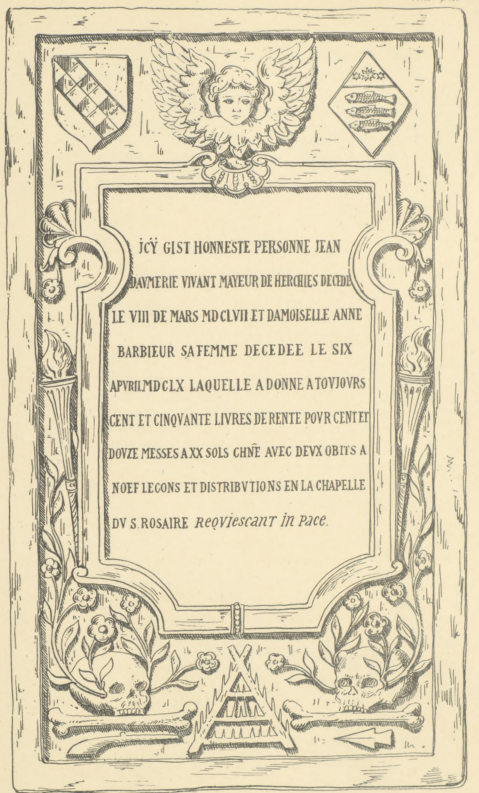 JCŸ GIST HONNESTE PERSONNE JEAN
DAVMERIE VIVANT MAYEUR DE HERCHIES DECEDE
LE VIII DE MARS MDCLVII ET DAMOISELLE ANNE
BARBIEUR SA FEMME DECEDEE LE SIX
APVRIL MDCLX LAQUELLE A DONNE A TOVJOVRS
CENT ET CINQVANTE LIVRES DE RENTE POVR CENT ET
DOVZE MESSES A XX SOLS CHNE̅ AVEC DEVX OBITS A
NOEF LECONS ET DISTRIBVTIONS EN LA CHAPELLE
DV S. ROSAIRE Reqviescant in Pace.